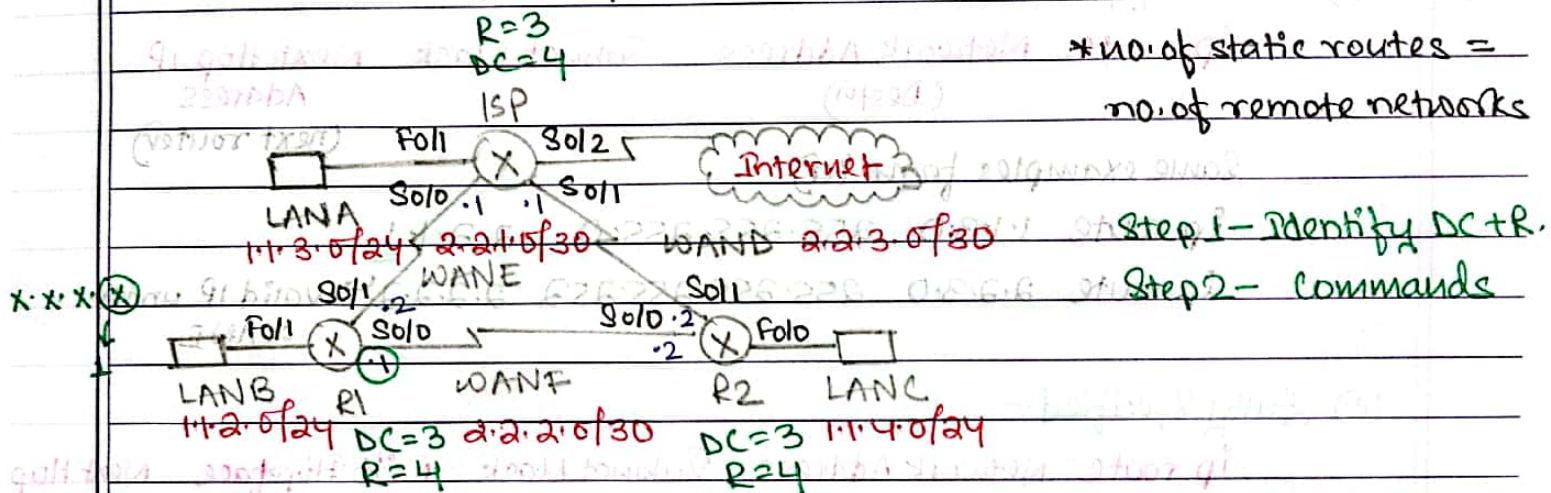 R=3
DC=4
*no. of static routes =
no. of remote networks
ISP
Fo/1
So/2
Internet
So/0 .1 .1 So/1
LANA
1.1.3.0/24 2.2.1.0/30 WAND 2.2.3.0/30
Step 1 - Identify DC+R.
WANE
Step 2 - Commands
X.X.X.X
So/1 .2
So/1
Fo/1
So/0
So/0 .2
Fo/0
.1
.2
LANB
R1
WANF
R2
LANC
1.1.2.0/24
DC=3
2.2.2.0/30
DC=3
1.1.4.0/24
R=4
R=4